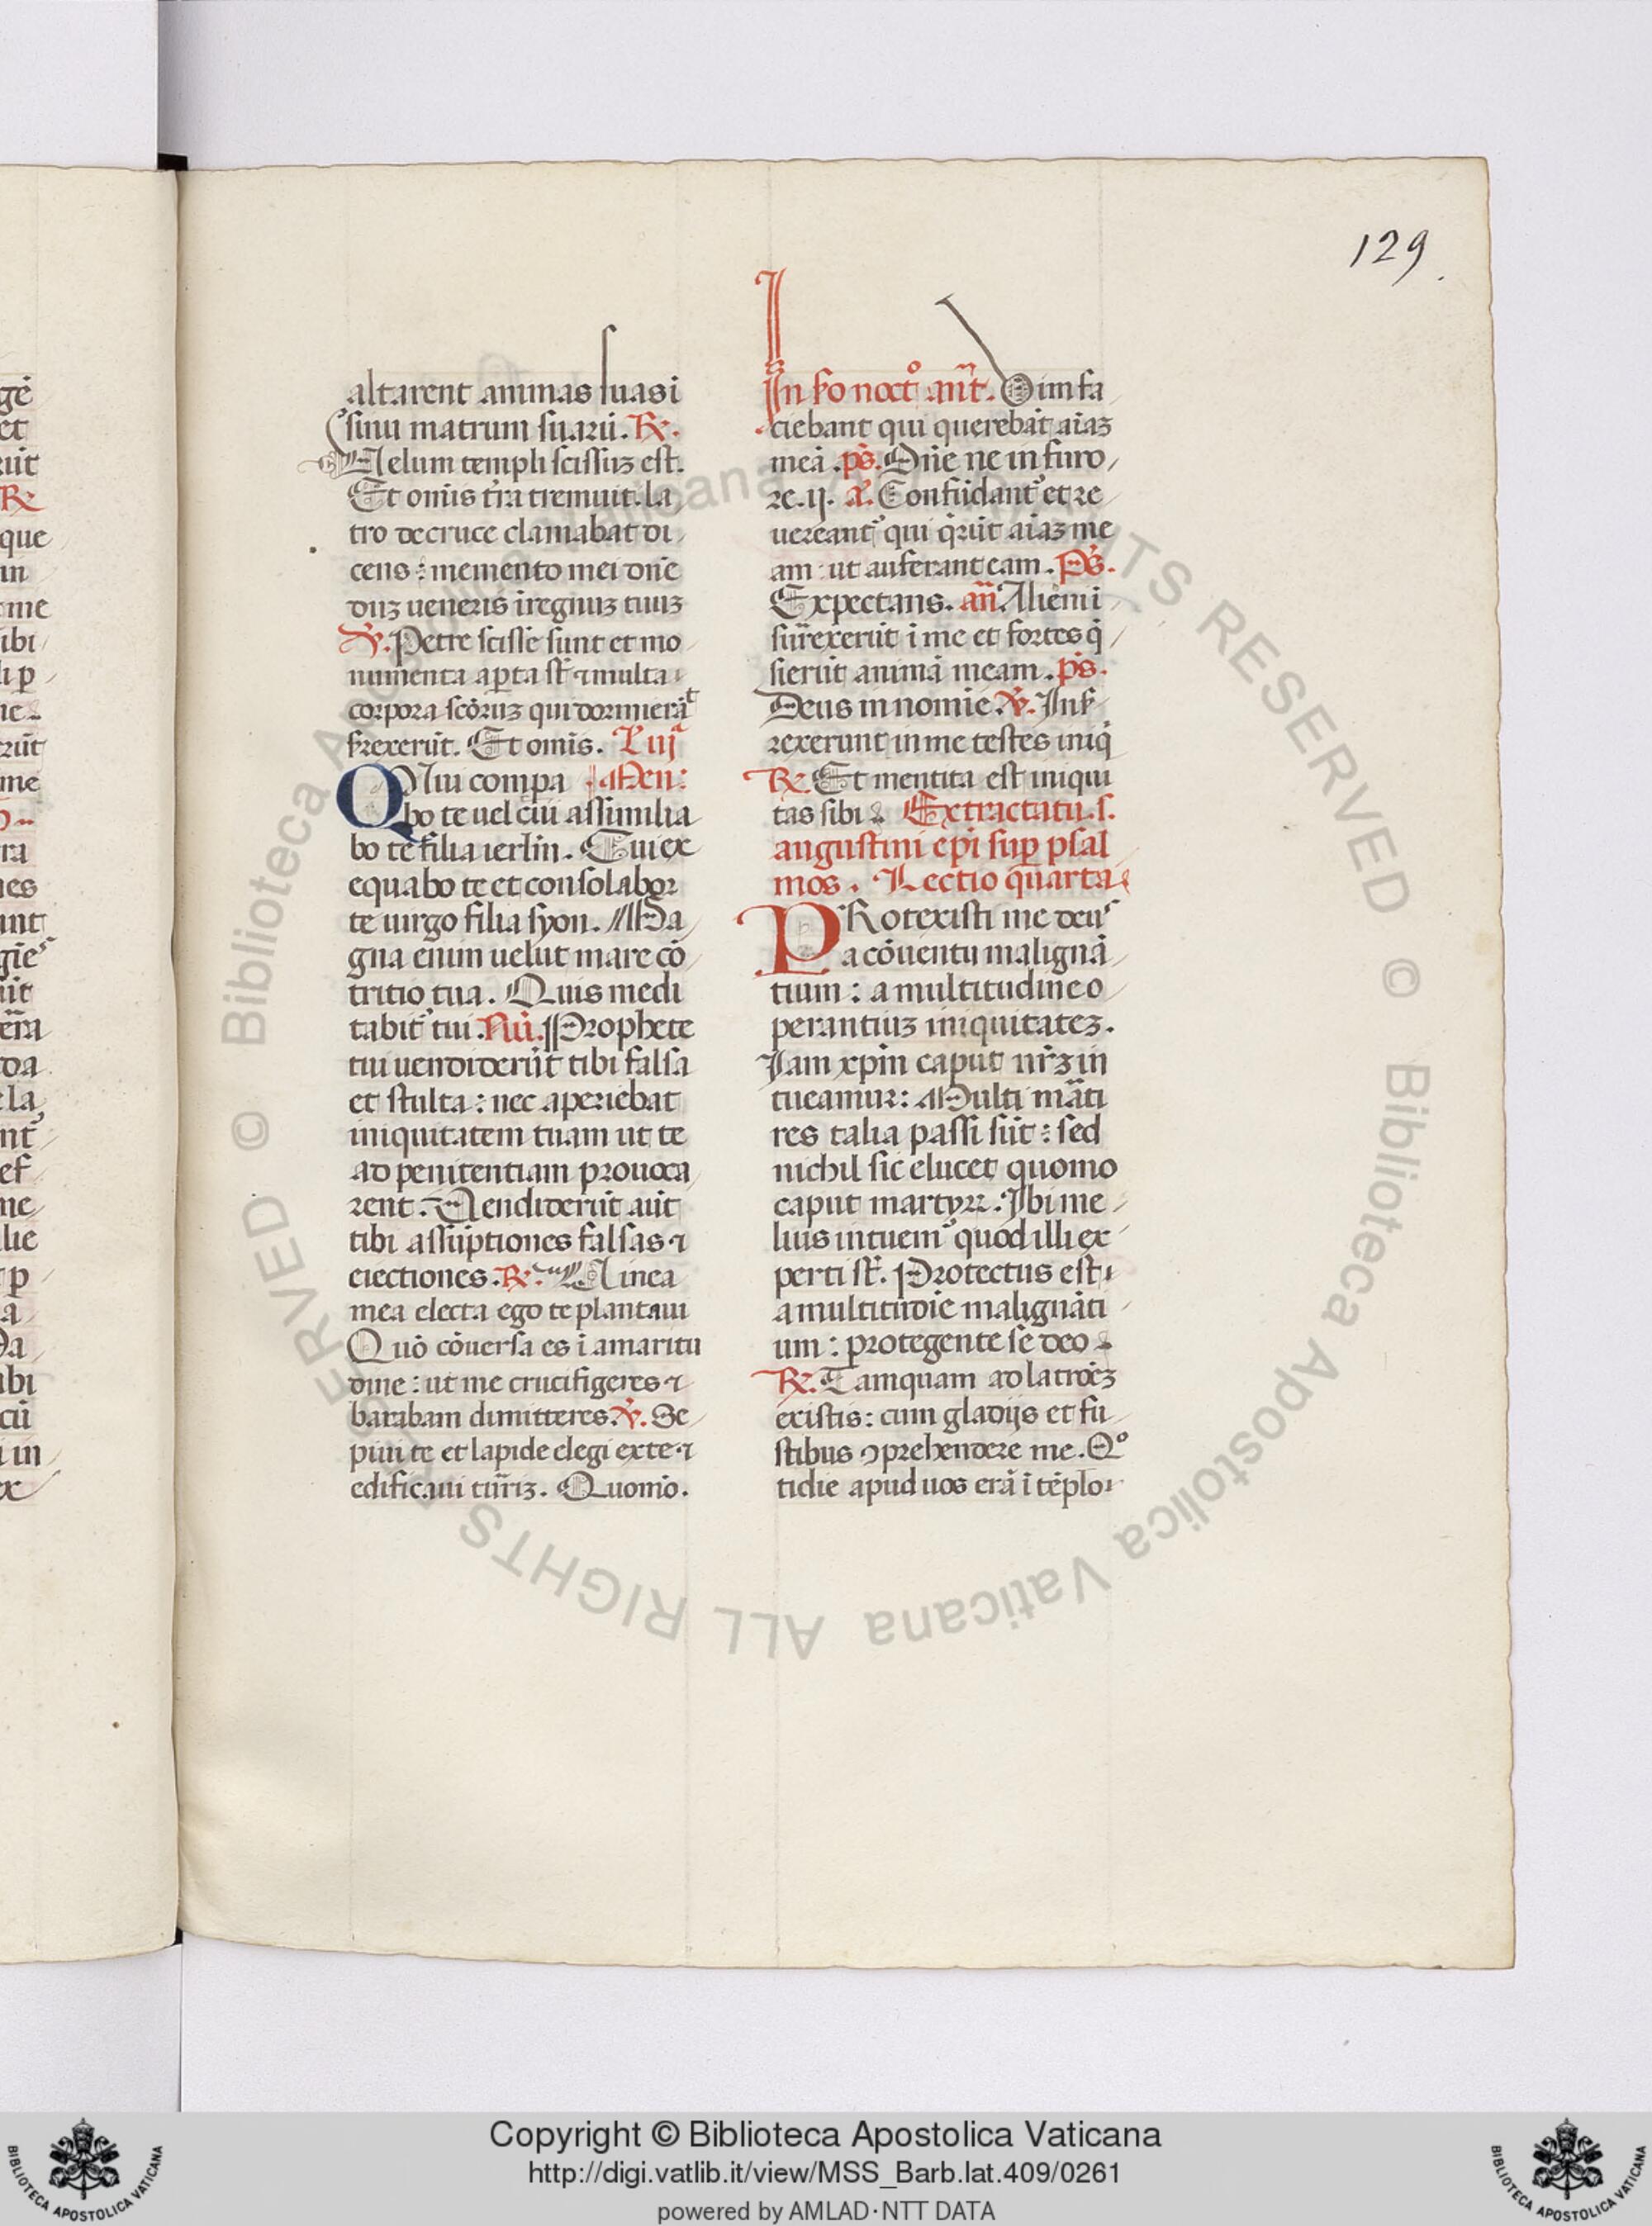 129
altarent animas suas ī
sinu matrum suarū. ℟.
Uelum templi scissuꝫ est.
Et om̄is t̄ra tremuit. la
tro de cruce clamabat di
cens : memento mei dn̄e
duꝫ ueneris ī regnuꝫ tuuꝫ
℣. Petre scisse sunt et mo
numenta aꝑta st̄ ⁊ multa
corpora scōruꝫ qui dormierāt
srexerūt. Et omīs. L' iij
QUui compa Aleu:
bo te uel cui assimila
bo te filia ierl'm. Cui ex
equabo te et consolabor
te uirgo filia syon. Ma
gna enim uelut mare cō
tritio tua. Quis medi
tabit᷑ tui. Nū. Prophete
tui uendiderūt tibi falsa
et stulta : nec aperiebat
iniquitatem tuam ut te
ad penitentiam prouoca
rent. Uendiderūt aūt
tibi assūptiones falsas ⁊
eiectiones. ℟. Uinea
mea electa ego te plantaui
Quō cōuersa es ī amaritu
dine : ut me crucifigeres ⁊
baraban dimitteres. ℣. Se
piui te et lapide elegi ex te ⁊
edificaui turrꝫ. Quomō.
In so noct᷑o ant̄. Uim fa
ciebant qui querebāt aīaꝫ
meā. ps̄. Dn̄e ne in furo
re. ij. a᷑. Confūdant᷑ et re
uereant᷑ qui q̄rūt aīaꝫ me
am : ut auferant eam. Ps̄.
Expectans. an̄. Alieni ī
surrexerūt ī me et fortes q̄
sierūt animā meam. ps̄.
Deus in nomīe. ℣. Insr
rexerunt in me testes iniq̄
℟. Et mentita est iniqui
tas sibi. Ex tractatu. s.
augustini ep̄i suꝑ psal
mos. Lectio quarta
PRotexisti me deus
a cōuentu malignā
tium : a multitudine o
perantiuꝫ iniquitateꝫ.
Jam xp̄m caput nr̄ꝫ in
tueamur: Multi mārti
res talia passi sūt : sed
nichil sic elucet quomō
caput martyꝝ. Ibi me
lius intuem᷑ quod illi ex
perti st̄. Protectus est
a multitudīe malignāti
um : protegente se deo
℟. Tamquam ad latroēꝫ
existis : cum gladijs et fu
stibus ꝯprehendere me. Qo
tidie apud uos erā ī tēplo
© Biblioteca Apostolica Vaticana ALL RIGHTS RESERVED © Biblioteca Apostolica Vaticana ALL RIGHTS RESERVED
Copyright © Biblioteca Apostolica Vaticana
http://digi.vatlib.it/view/MSS_Barb.lat.409/0261
powered by AMLAD·NTT DATA
BIBLIOTECA APOSTOLICA VATICANA
BIBLIOTECA APOSTOLICA VATICANA